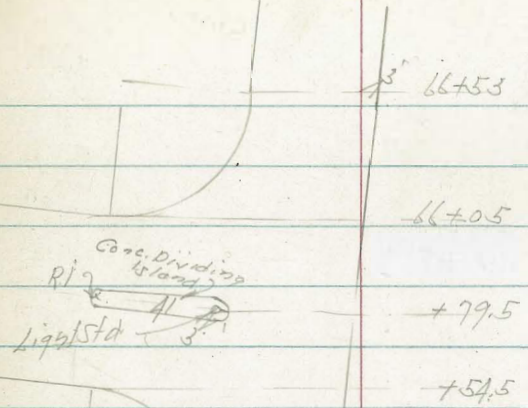 3' 66+53
66+05
Conc. Dividing
Island
R.I
4'
+79.5
Light Std
3'
+54.5